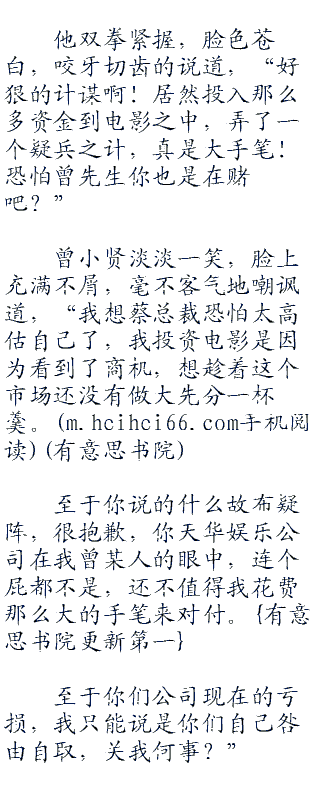 他双拳紧握，脸色苍
白，咬牙切齿的说道，“好
狠的计谋啊！居然投入那么
多资金到电影之中，弄了一
个疑兵之计，真是大手笔！
恐怕曾先生你也是在赌
吧？”
曾小贤淡淡一笑，脸上
充满不屑，毫不客气地嘲讽
道，“我想蔡总裁恐怕太高
估自己了，我投资电影是因
为看到了商机，想趁着这个
市场还没有做大先分一杯
羹。(m.hcihci66.com手机阅
读)(有意思书院)
至于你说的什么故布疑
阵，很抱歉，你天华娱乐公
司在我曾某人的眼中，连个
屁都不是，还不值得我花费
那么大的手笔来对付。{有意
思书院更新第一}
至于你们公司现在的亏
损，我只能说是你们自己咎
由自取，关我何事？”